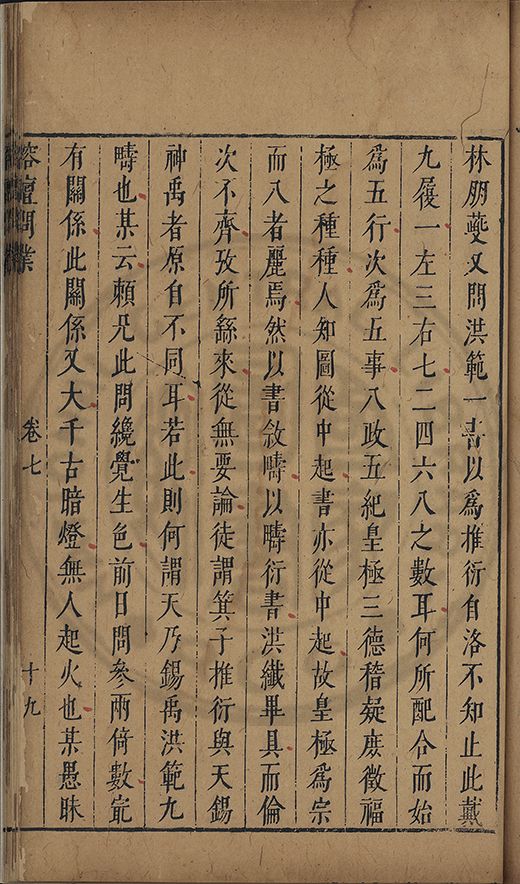 林朋夔又問洪範一書以為推衍自洛不知止此戴
九履一左三右七二四六八之數耳何所配合而始
為五行次為五事八政五紀皇極三德稽疑庶徵福
極之種種人知圖從中起書亦從中起故皇極為宗
而八者麗焉然以書敘疇以疇衍書洪纖畢具而倫
次不齊攷所繇來從無要論徒謂箕子推衍與天錫
神禹者原自不同耳若此則何謂天乃錫禹洪範九
疇也某云賴兄此問纔覺生色前日問參兩倚數寔
有關係此關係又大千古暗燈無人起火也某愚昧
容壇問業
卷七
十九